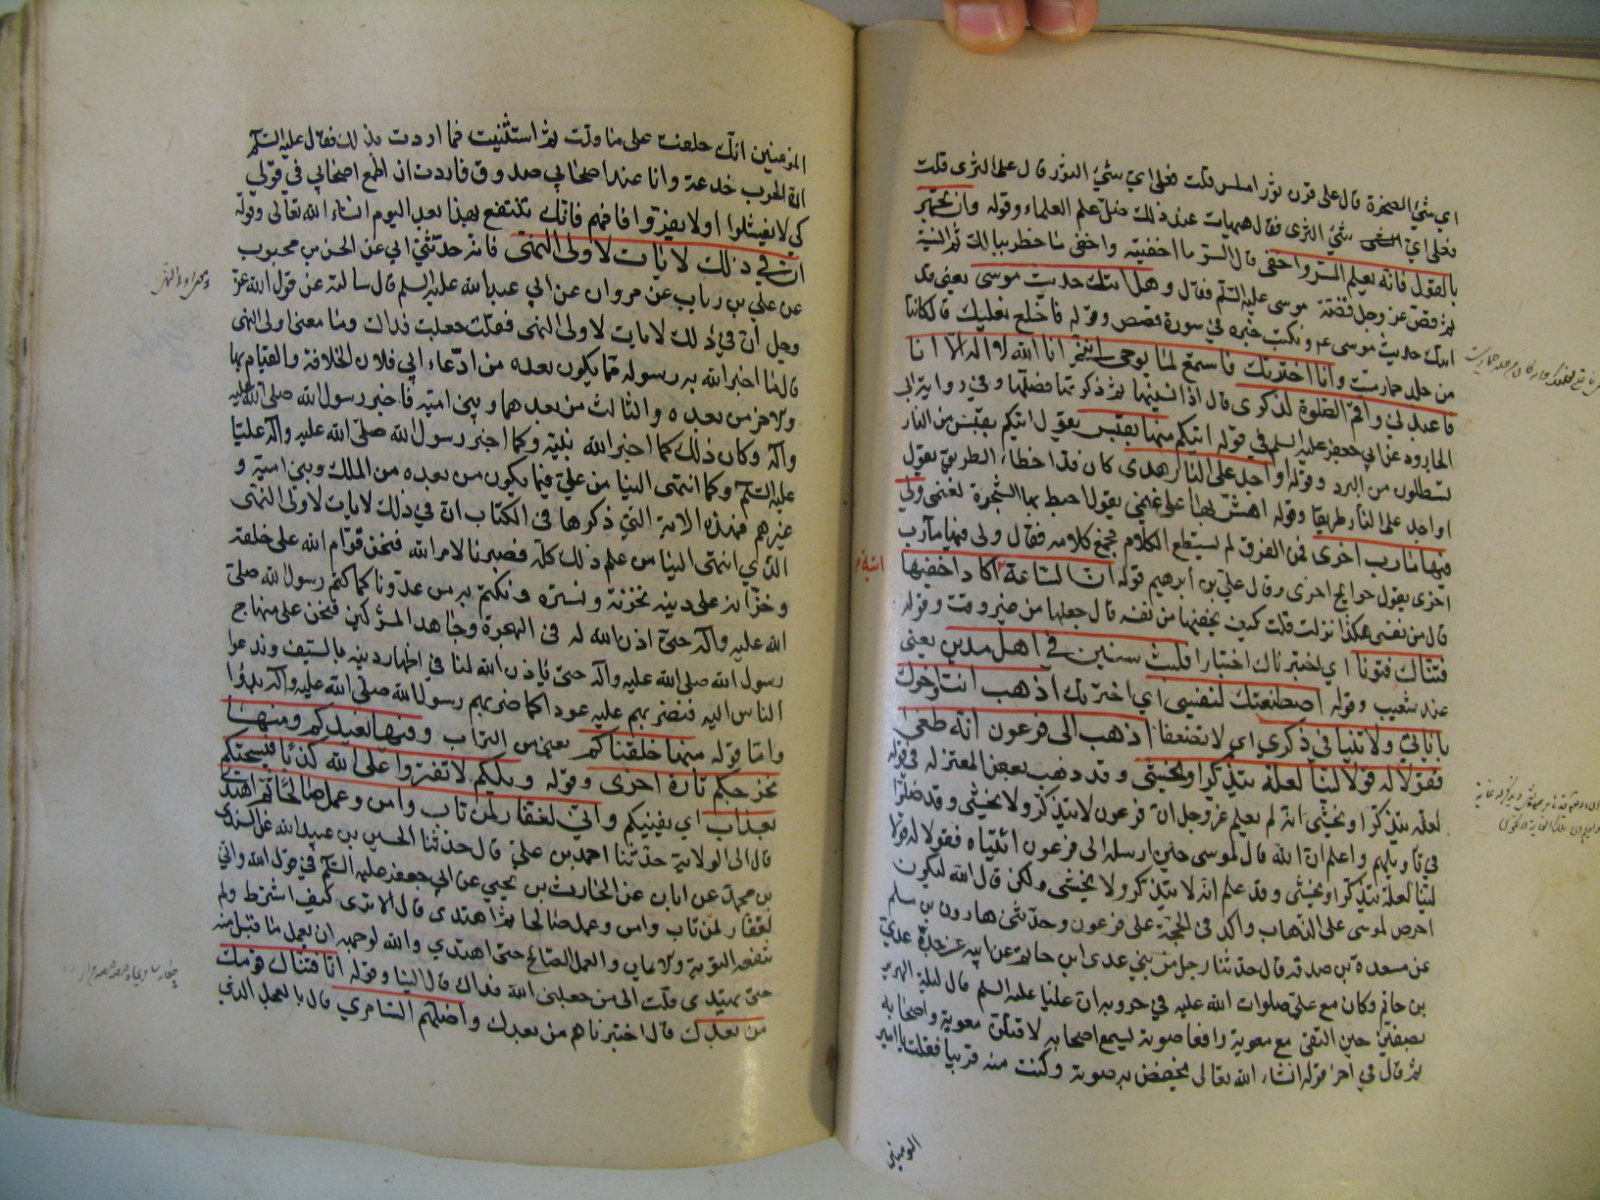 اي شيء الصخرة قال على قرن ثور املس قلت فعلى اي شيء الثور قال على الثرى قلت
فعلى اي شيء الثرى فقال هيهات عند ذلك ضل علم العلماء وقوله وان تجهر
بالقول فانه يعلم السر واخفى قال السر ما اخفيته واخفى ما خطر ببالك ثم انسيته
ثم قص عز وجل قصة موسى عليه السلم فقال وهل اتيك حديث موسى يعني قد
اتيك حديث موسى ع ونكتب خبره في سورة قصص وقوله فاخلع نعليك قال كانتا
من جلد حمار ميت وانا اخترتك فاستمع لما يوحى انني انا الله لا اله الا انا
فاعبدني واقم الصلوة لذكري قال اذا نسيتها ثم ذكرتها فصلها وفي رواية ابي
الجارود عن ابي جعفر عليه السلم في قوله اتيكم منها بقبس يقول اتيكم بقبس من النار
تسطلون من البرد وقوله او اجد على النار هدى كان قد اخطاء الطريق يقول
او اجد على النار طريقا وقوله اهش بها على غنمي يقول اخبط بها الشجرة لغنمي ولي
فيها مارب اخرى فمن الفرق لم يستطع الكلام فجمع كلامه فقال ولي فيها مآرب
اخرى يقول حوايج اخرى وقال علي بن ابرهيم قوله ان الساعة اتية اكاد اخفيها
قال من نفسي هكذا نزلت قلت كيف يخفيها من نفسه قال جعلها من غير وقت وقوله
فتناك فتونا اي اختبرناك اختبارا فلبثت سنين في اهل مدين يعني
عند شعيب وقوله اصطنعتك لنفسي اي اخترتك اذهب انت واخوك
باياتي ولا تنيا في ذكري اي لا تضعفا اذهبا الى فرعون انه طغى
فقولا له قولا لينا لعله يتذكر او يخشى وقد ذهب بعض المعتزله في قوله
لعله يتذكر او يخشى انه لم يعلم عز وجل ان فرعون لا يتذكر ولا يخشى وقد ضلوا
في تاويلهم واعلم ان الله قال لموسى حين ارسله الى فرعون ائتياه فقولا له قولا
لينا لعله يتذكر او يخشى وقد علم انه لا يتذكر ولا يخشى ولكن قال الله ليكون
احرص لموسى على الذهاب واكد في الحجة على فرعون وحدثني هارون بن مسلم
عن مسعدة بن صدقه قال حدثنا رجل من بني عدي ابن حاتم عن ابيه عن جده عدي
بن حاتم وكان مع علي صلوات الله عليه في حروبه ان عليا عليه السلم قال ليلة الهرير
بصفين حين التقى مع معوية رافعا صوته ليسمع اصحابه لاقتلن معوية واصحابه
ثم قال في اخر قوله انشاء الله تعالى يخفض به صوته وكنت منه قريبا فقلت يا امير
المومنين
المؤمنين انك حلفت على ما قلت ثم استثنيت فما اردت بذلك فقال عليه السلم
ان الحرب خدعة وانا عند اصحابي صدوق فاردت ان اطمع اصحابي في قولي
كي لا يفشلوا او لا يفروا فافهم فانك تنتفع بهذا بعد اليوم انشاء الله تعالى وقوله
ان في ذلك لايات لاولي النهى فانه حدثني ابي عن الحسن بن محبوب
عن علي بن رياب عن مروان عن ابي عبد الله عليه السلم قال سالته عن قول الله عز
وجل ان في ذلك لايات لاولى النهى فقلت جعلت فداك وما معنى اولى النهى
قال ما اخبر الله به رسوله مما يكون بعده من ادعاء ابي فلان الخلافة والقيام بها
والاخر من بعده والثالث من بعدهما وبني اميه فاخبر رسول الله صلى الله عليه
وآله وكان ذلك كما اخبر الله نبيه وكما اخبر رسول الله صلى الله عليه وآله عليا
عليه السلم وكما انتهى الينا من علي فيما يكون من بعده من الملك وبني امية و
غيرهم فهذه الاية التي ذكرها في الكتاب ان في ذلك لايات لاولى النهى
الذي انتهى الينا من علم ذلك كله فصبرنا لامر الله فنحن قوام الله على خلقه
وخزانه على دينه نخزنه ونستره ونكتم به من عدونا كما كتم رسول الله صلى
الله عليه وآله حتى اذن الله له في الهجرة وجاهد المشركين فنحن على منهاج
رسول الله صلى الله عليه وآله حتى ياذن الله لنا في اظهار دينه بالسيف وندعوا
الناس اليه فنضربهم عليه عودا كما ضربهم رسول الله صلى الله عليه وآله بدوا
واما قوله منها خلقناكم يعني من التراب وفيها نعيدكم ومنها
نخرجكم تارة اخرى وقوله ويلكم لا تفتروا على الله كذبا فيسحتكم
بعذاب اي يفنيكم واني لغفار لمن تاب وامن وعمل صالحا ثم اهتدى
قال الى الولاية حدثنا احمد بن علي قال حدثنا الحسين بن عبيد الله عن السندي
بن محمد عن ابان عن الحارث بن يحيي عن ابي جعفر عليه السلم في قول الله واني
لغفار لمن تاب وامن وعمل صالحا ثم اهتدى قال الا ترى كيف اشترط ولم
تنفعه التوبة والايمان والعمل الصالح حتى اهتدي والله لو جهد ان يعمل ما قبل منه
حتى يهتدى قلت الى من جعلني الله فداك قال الينا وقوله انا فتنا قومك
من بعدك قال اختبرناهم من بعدك واضلهم السامري قال بالعجل الذي